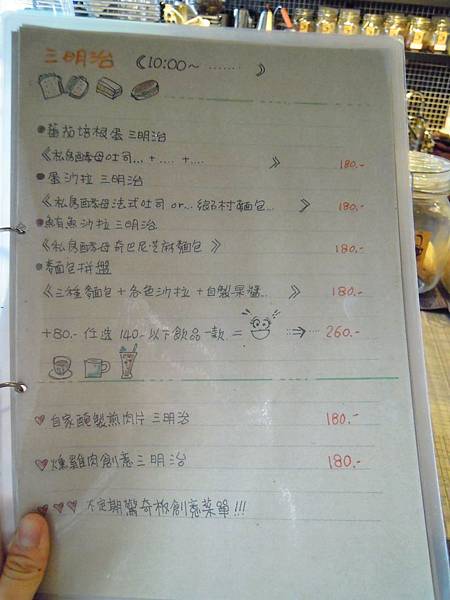 三明治 《10:00~ ........ 》
●蕃茄培根蛋 三明治
《私房酵母吐司... + .... + .... 》 180.-
●蛋沙拉 三明治
《私房酵母法式吐司 or... 鄉村麵包... 》 180.-
●鮪魚沙拉 三明治
《私房酵母 奇巴尼芝麻麵包 》 180.-
●麵包拼盤
《三種麵包 + 各色沙拉 + 自製果醬.. 》 180.-
+80.- 任選 140.- 以下飲品一款. = ⇒ ... 260.-
♥ 自家醃製煎肉片 三明治 180.-
♥ 燻雞肉創意三明治 180.-
♥♥♥ 不定期驚奇極創意菜單!!!